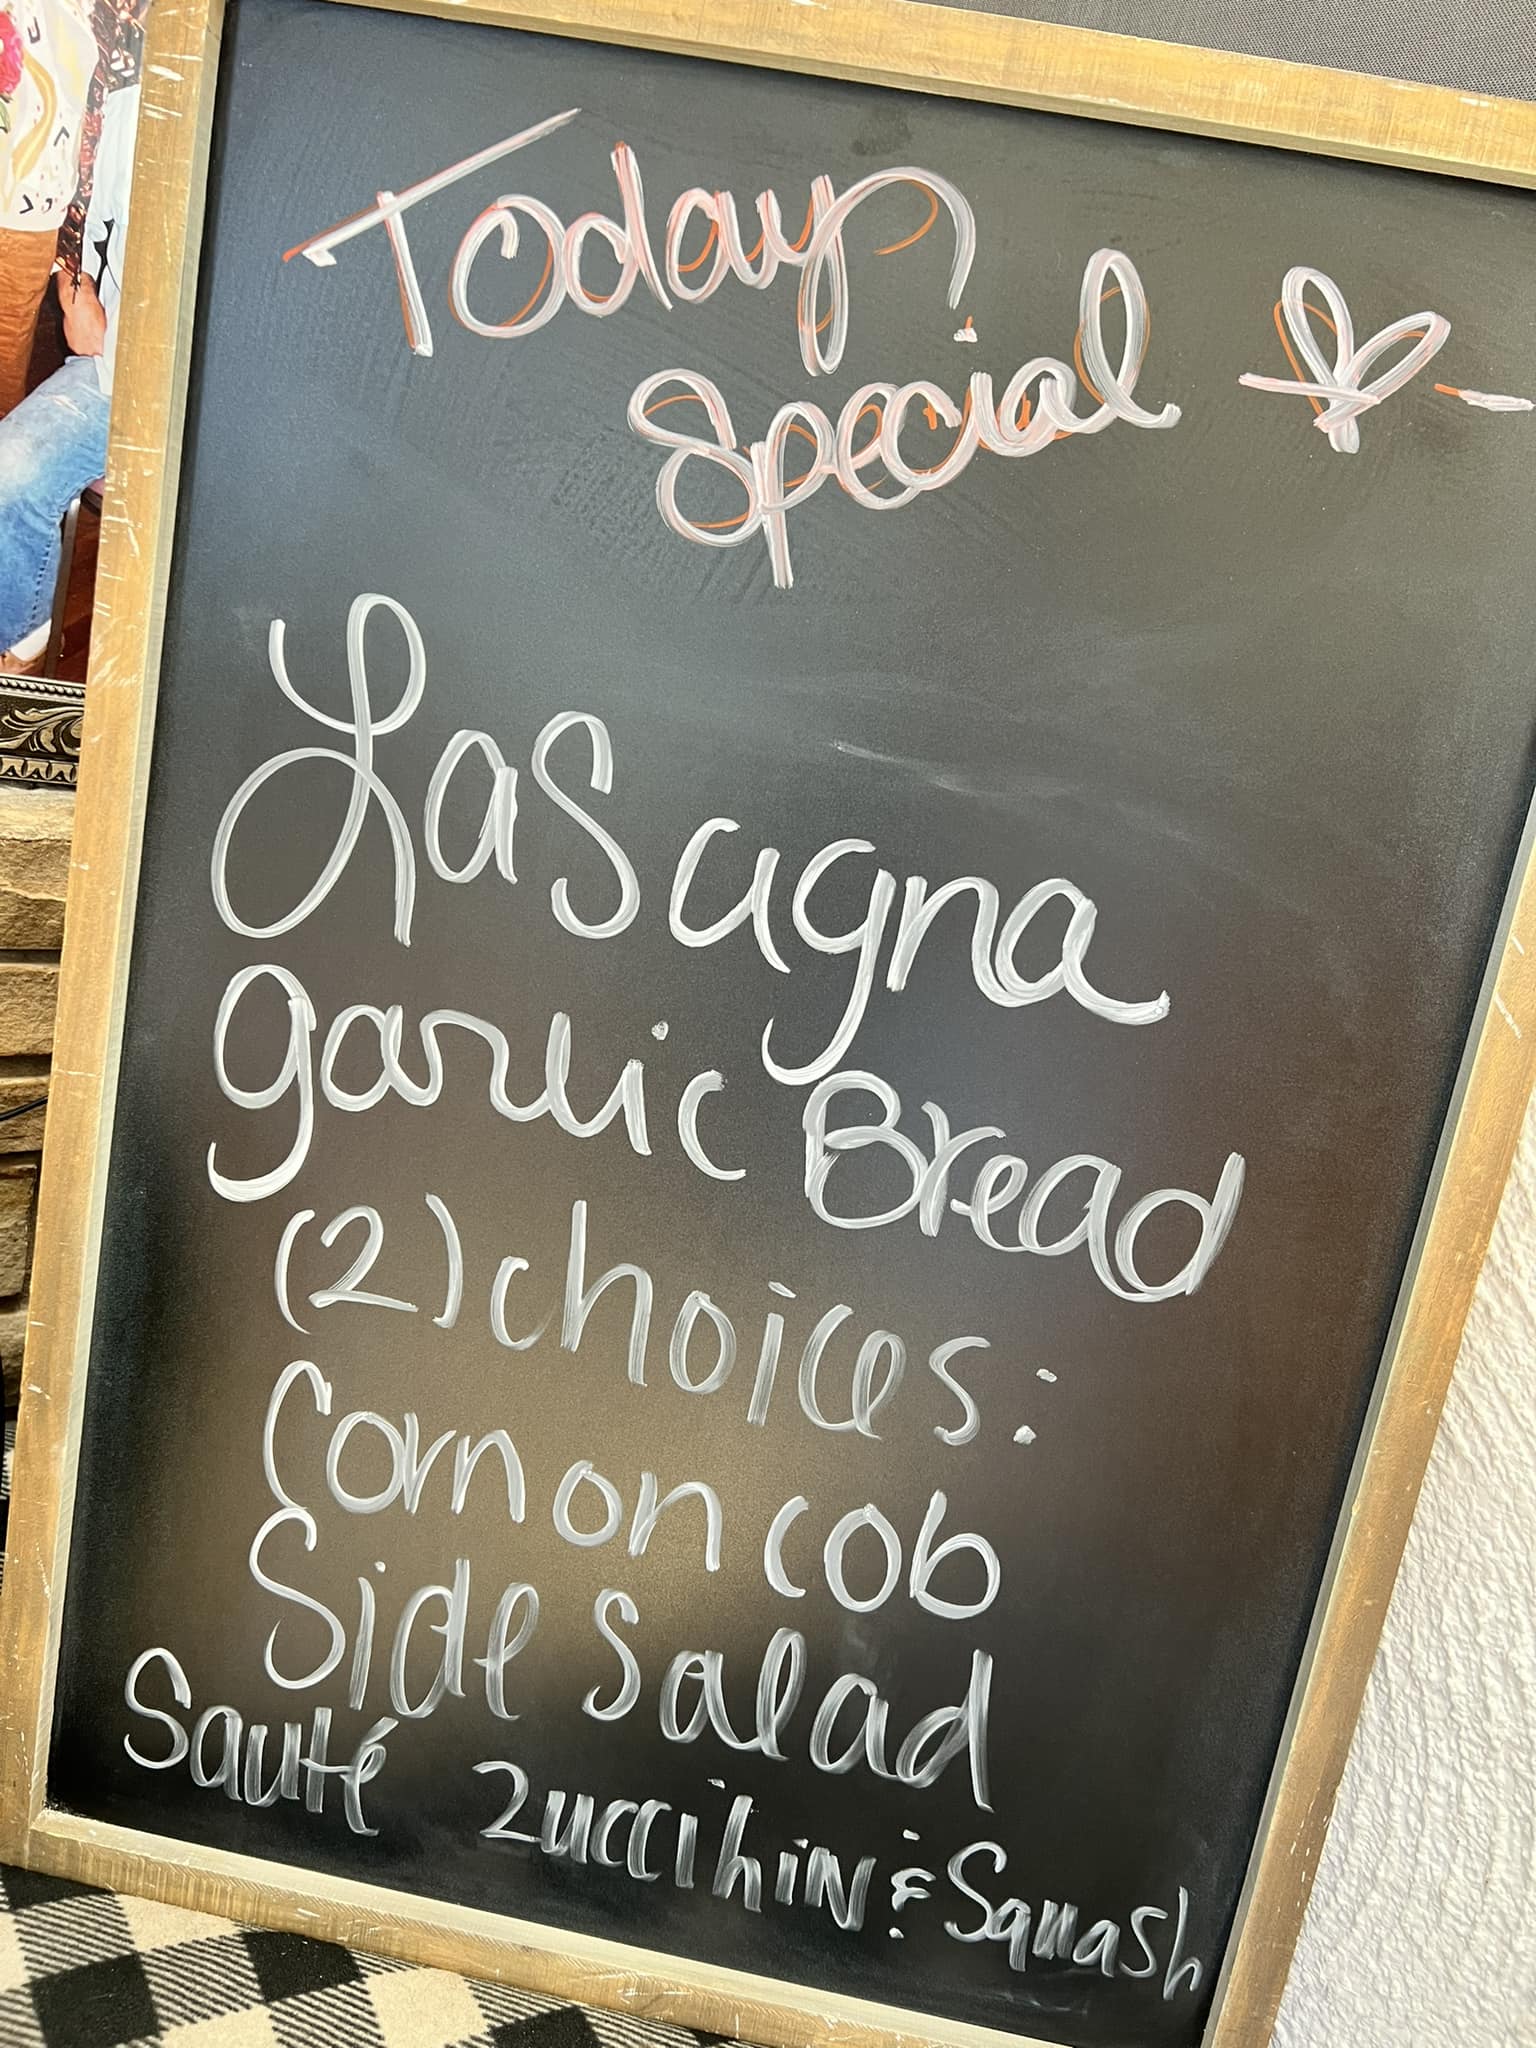 Today
Special
Lasagna
garlic Bread
(2) choices:
Corn on cob
Side Salad
Sauté Zuccihin & Squash